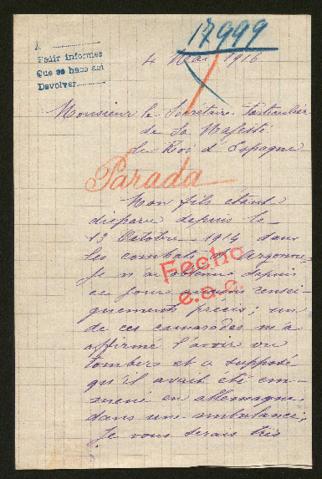 17999
A
Pedir informes
Que se haga así
Devolver
4 Mai 1916
Monsieur le Secrétaire Particulier
de Sa Majesté
le Roi d'Espagne
Parada
Mon fils étant
disparu depuis le
13 Octobre 1914 dans
les combats d'Argonne
je n'ai obtenu depuis
Fecho
e.a.c.
ce jour aucun rensei-
gnements précis; un
de ces camarades m'a
affirmé l'avoir vu
tombers et a supposé
qu'il avait été em-
mené en allemagne
dans une ambulance;
Je vous serais très